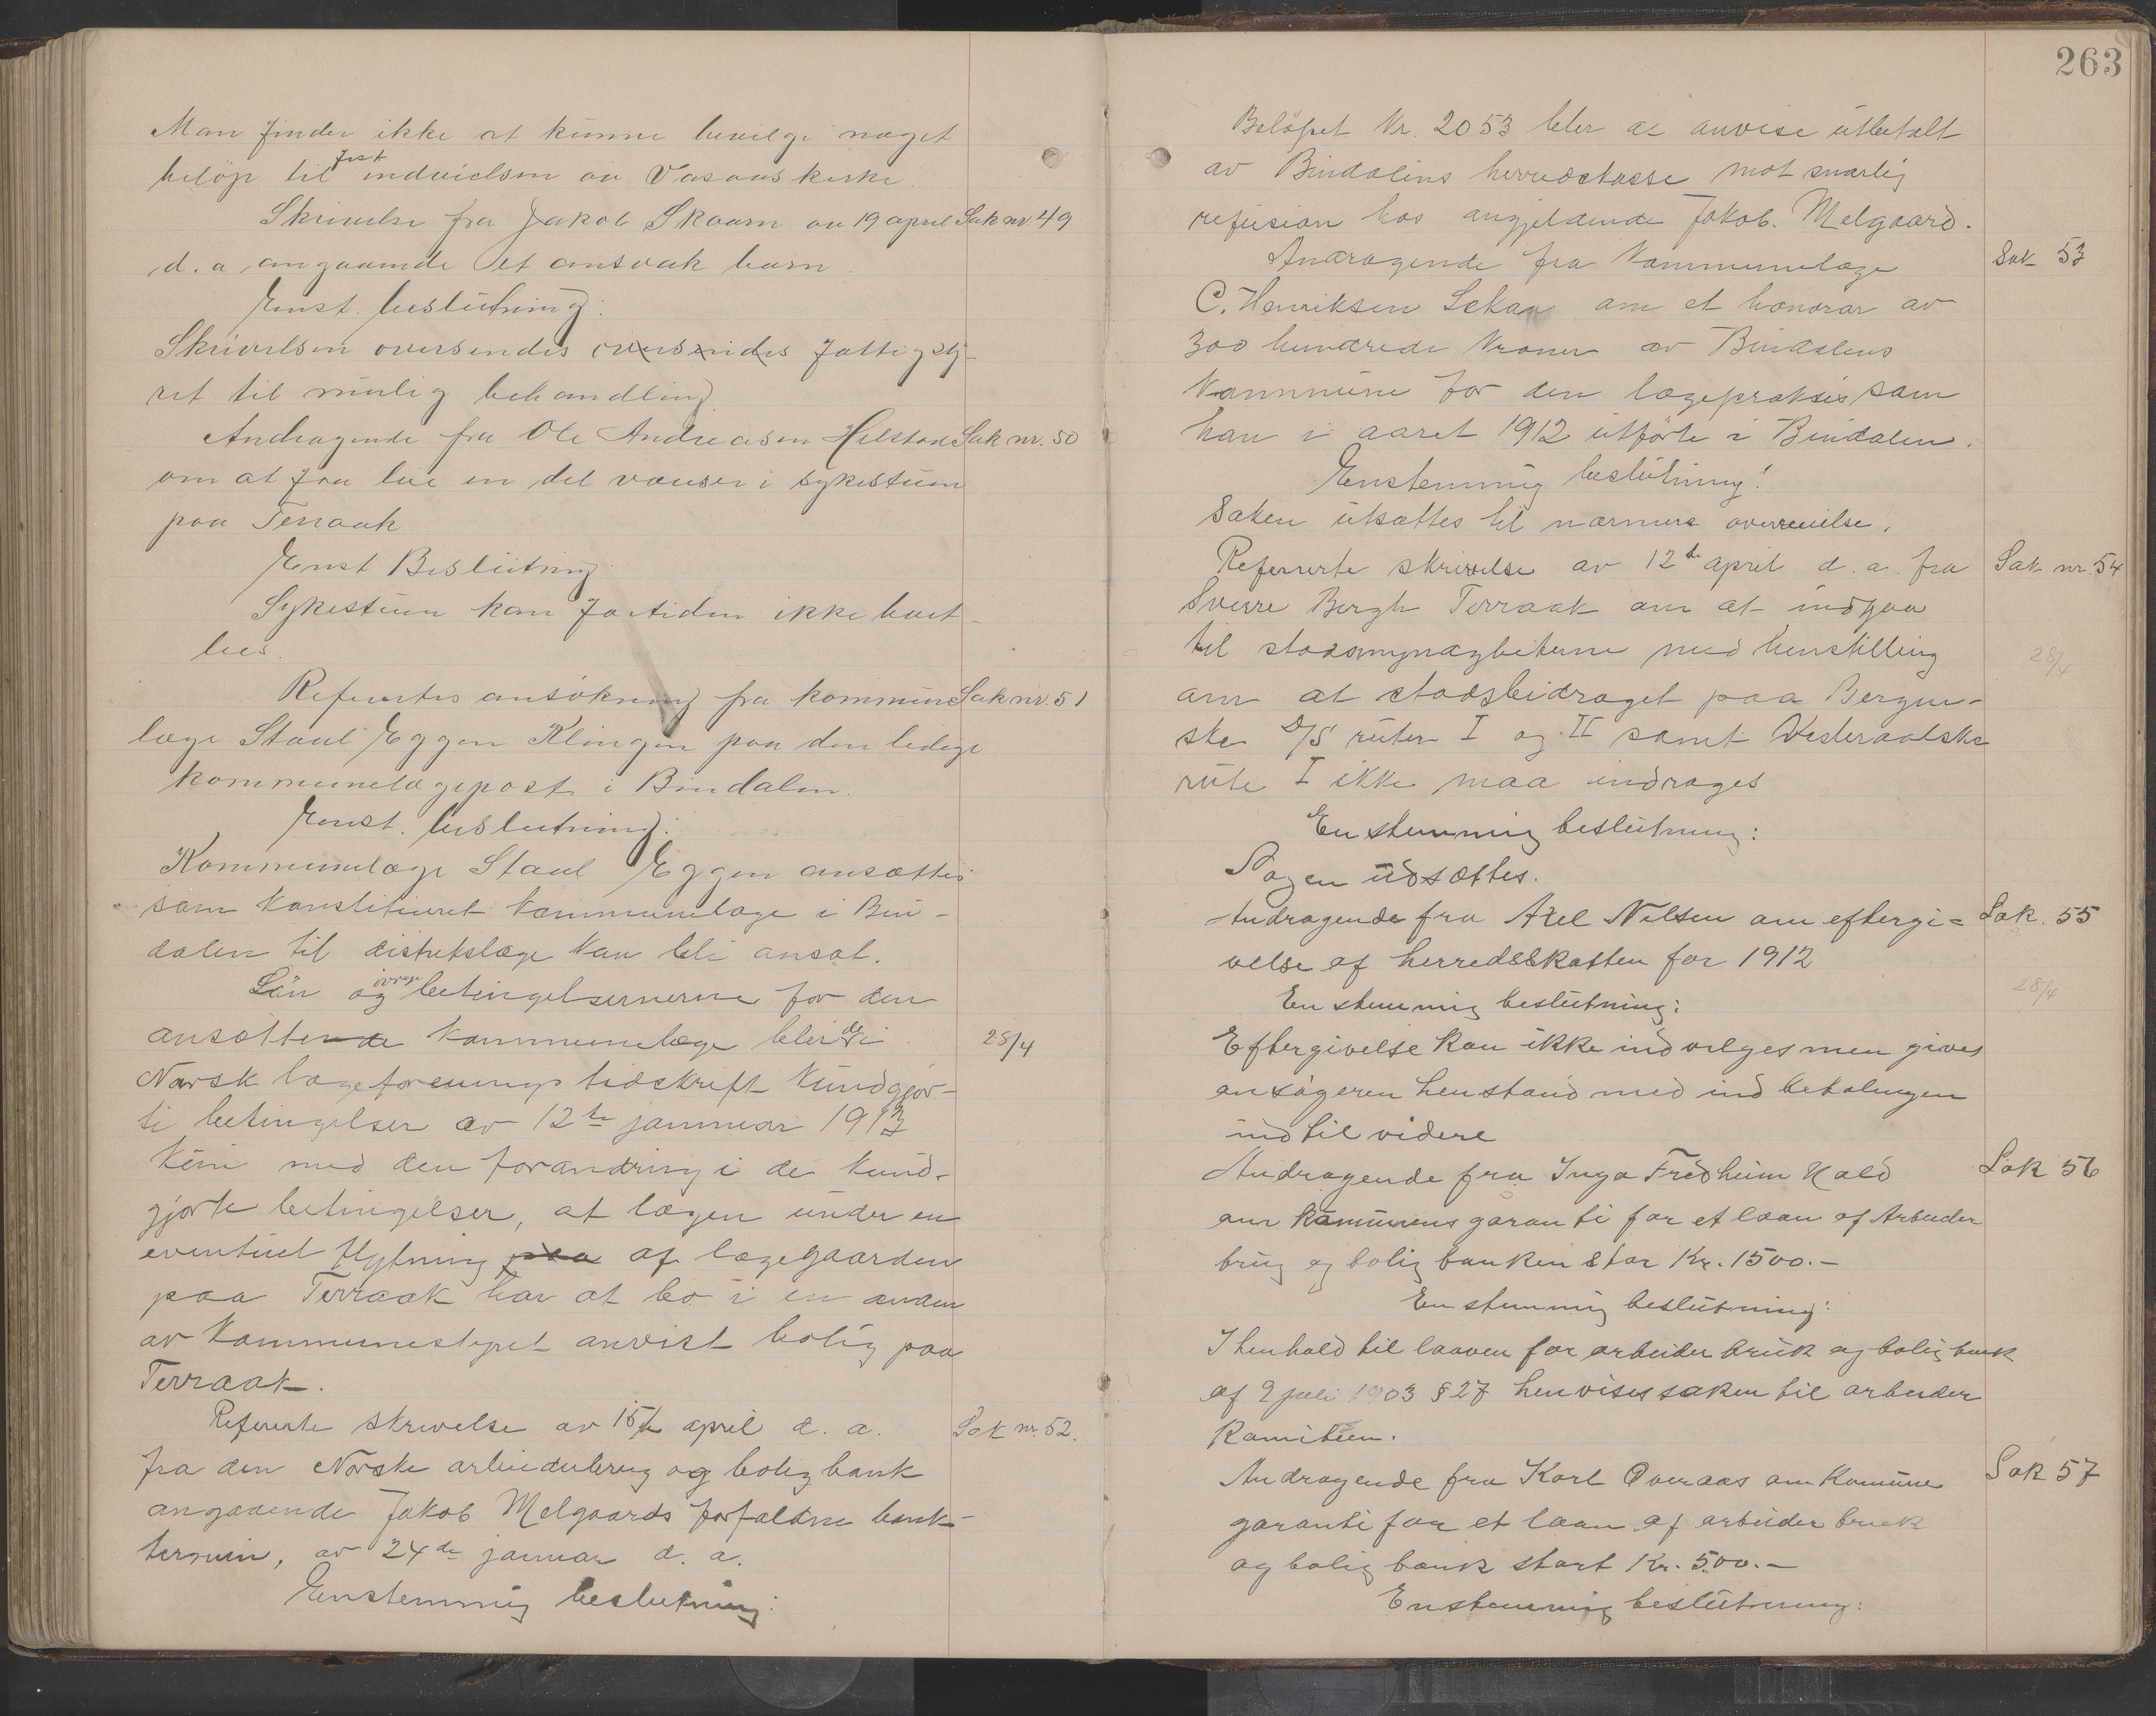 Man finder ikke at kunne bevilge noget
beløp til fest indvielsen av Vasaas kirke.
Skrivelse fra Jakob Skaarn av 19 april Sak nr. 49
d. a angaaende et ansvak barn.
Enst. beslutning:
Skrivelsen oversendes oversendes fattigsty-
ret til mulig behandling.
Andragende fra Ole Andreasen Helstad Sak nr. 50
om at faa leie en del væuser i sykestuen
paa Terraak
Enst Beslutning:
Sykestuen kan for tiden ikke bort-
lies.
Refertes ansökning fra kommune Sak nr. 51
læge Staul Eggen Klingen paa den ledige
kommunelægepost i Bindalen.
Enst. beslutning:
Kommunelæge Staul Eggen ansættes
som konstitueret kommunelæge i Bin-
dalen til distrktslæge kan bli ansat.
Lön og øvrige betingelsernerne for den
ansættende kommunelæge bleir de i 28/4
Norsk lægeforenings tidskrift kundgjor-
te betingelser av 12te januar 1913
kun med den forandring i de kund-
gjorte betingelser, at lægen under en
eventuel flytning paa af lægegaarden
paa Terraak har at bo i en anden
av kommunestyret anvist bolig paa
Terraak.
Referte skrivelse av 15de april d. a. Sak nr. 52.
fra den Norske arbeiderbrug og boligbank
angaaende Jakob Melgaards forfaldne bank-
termin, av 24de januar d. a.
Enstemmig beslutning:
263
Beløpet Kr. 20.53 bler at anvise utbetalt
av Bindalens herredskasse mot snarlig
refusion hos angjeldende Jakob. Melgaard.
Andragende fra Kommunelæge Sak 53
C. Henriksen Lekan om et honorar av
300 hundrede Kroner av Bindalens
Kommune for den lægepraksis som
han i aaret 1912 utførte i Bindalen.
Enstemmig beslutning!
Saken utsættes til nærmere overveielse.
Refererte skrivelse av 12te april d. a. fra Sak nr. 54
Sverre Bergh Terraak om at indgaa
til stadsmyndgheterne med henstilling 28/4
om at stadsbidraget paa Bergen-
ske D/S ruten I og II samt Vesteraalske
rute I ikke maa indrages
Enstemmig beslutning:
Sagen udsættes.
Andragende fra Axel Nilsen om eftergi= Sak. 55
velse af herredsskatten for 1912
Enstemmig beslutning: 28/4
Eftergivelse kan ikke indvilges men gives
ansøgeren henstand med ind betalingen
indtil videre
Andragende fra Inga Fredheim Kald Sak 56
om kamunens garanti for et laan af Arbeider
brug og bolig banken stor Kr. 1500.-
Enstemmig beslutning:
I henhold til laaven for arbeider bruk og bolig bank
af 9 juli 1903 § 27 henvises saken til arbeider
Kamiteen.
Andragende fra Karl Overaas om Komune Sak 57
garanti for et laan af arbeider bruk
og bolig bank stort Kr. 500.-
Enstemmig beslutning: